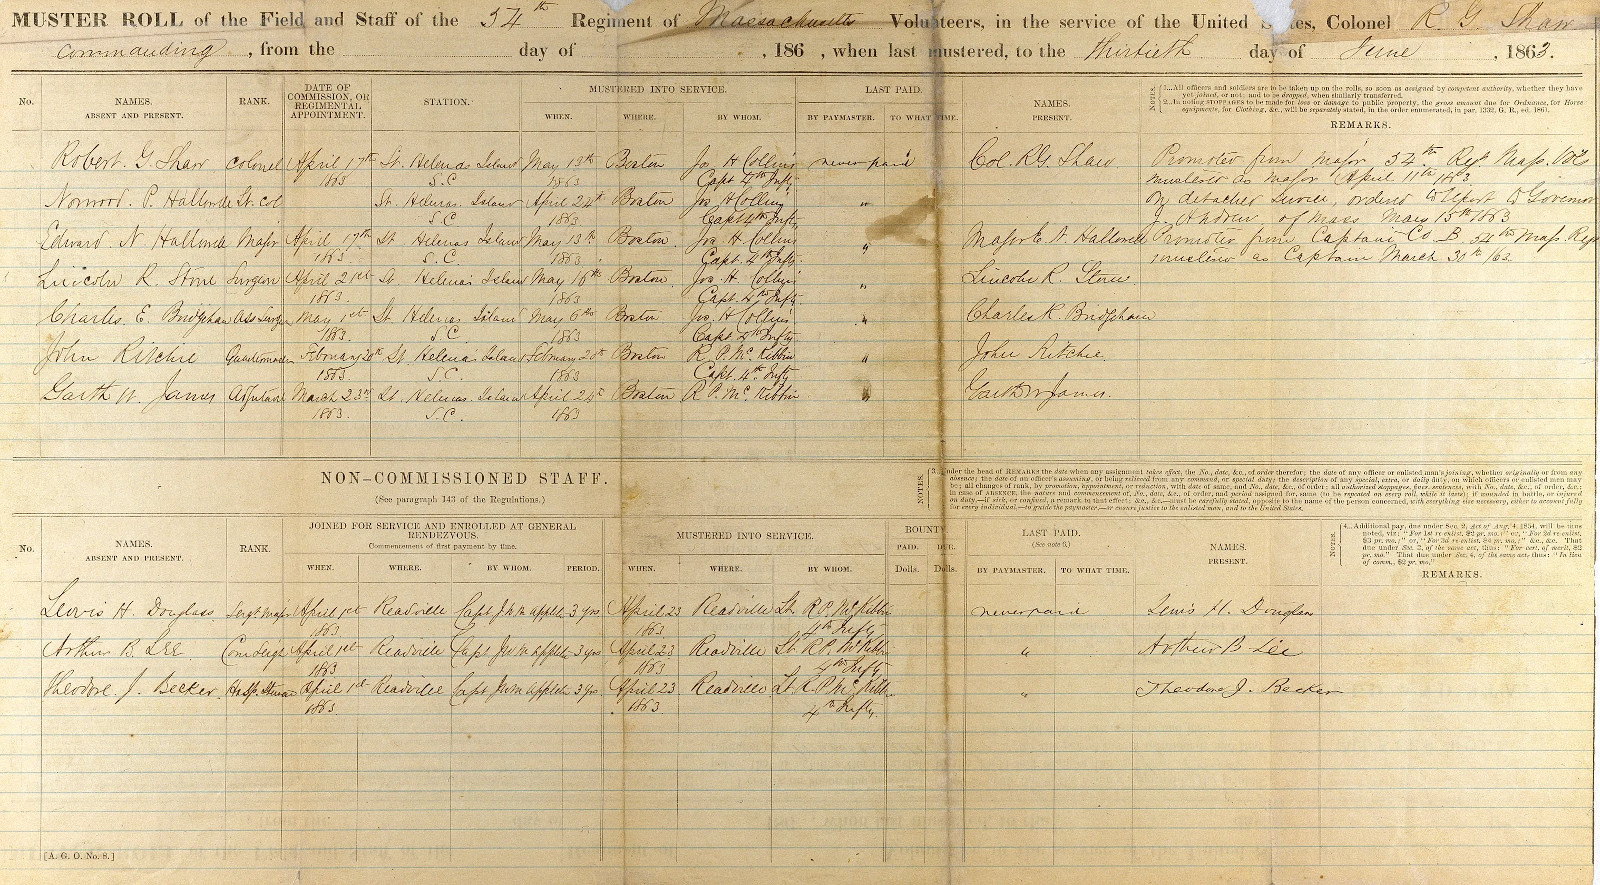 MUSTER ROLL of the Field and Staff of the 54th Regiment of Massachusetts Volunteers, in the service of the United States, Colonel R G Shaw
commanding, from the day of , 186 , when last mustered, to the thirtieth day of June , 1863.
No. NAMES. ABSENT AND PRESENT. RANK. DATE OF COMMISSION, OR REGIMENTAL APPOINTMENT. STATION. MUSTERED INTO SERVICE. WHEN. WHERE. BY WHOM. LAST PAID. BY PAYMASTER. TO WHAT TIME. NAMES. PRESENT.
NOTES. 1.—All officers and soldiers are to be taken up on the rolls, so soon as assigned by competent authority, whether they have
yet joined, or not; and to be dropped, when similarly transferred.
2.—In noting STOPPAGES to be made for loss or damage to public property, the gross amount due for Ordnance, for Horse
equipments, for Clothing, &c., will be separately stated, in the order enumerated, in par. 1332, G. R., ed. 1861.
REMARKS.
Robert. G. Shaw colonel April 17th St. Helenas Island May 13th Boston Jos H Collins never paid Col. R G. Shaw Promoted from major 54th Regt Mass. Vols
1863 S.C 1863 Capt 4th Infty mustered as major April 11th 1863
Norwood. P. Hallowell Lt. col St. Helenas. Island April 24th Boston Jos H Collins " On detached service, ordered to report to Governor
S.C 1863 Capt 4th Infty J. Andrew, of Mass May 15th 1863
Edward N Hallowell Major April 17th St Helenas Island May 13th Boston Jos. H. Collins " Major E. N. Hallowell Promoted from Captain Co B. 54th Mass. Regt
1863 S.C. 1863 Capt. 4th Infty. mustered as Captain March 30th 163
Lincoln R. Stone Surgeon April 21st St Helenas Island May 16th Boston Jos H. Collins " Lincoln R. Stone
1863. 1863 Capt. 4th Infty.
Charles. E. Bridgham Ass Surgn May 1st St Helenas Island May 6th Boston Jos. H Collins " Charles R. Bridgham
1863. S.C. 1863 Capt. 4th Infty
John Ritchie Quartermaster February 20th St. Helenas Island February 20th Boston R. P. Mc. Kibbin " John Ritchie.
1863 S.C. 1863 Capt. 4th Infty
Garth W. James Adjutant March 23rd St. Helenas. Island April 24th Boston R P. Mc. Kibbin " Garth W James.
1863. S.C. 1863
NON-COMMISSIONED STAFF.
(See paragraph 143 of the Regulations.)
NOTES. 3.—Under the head of REMARKS the date when any assignment takes effect, the No., date, &c., of order therefor; the date of any officer or enlisted man's joining, whether originally or from any
absence; the date of an officer's assuming, or being relieved from any command, or special duty; the description of any special, extra, or daily duty, on which officers or enlisted men may
be; all changes of rank, by promotion, appointment, or reduction, with date of same, and No., date, &c., of order; all authorized stoppages, fines, sentences, with No., date, &c., of order, &c.;
in case of ABSENCE, the nature and commencement of, No., date, &c., of order, and period assigned for, same (to be repeated on every roll, while it lasts); if wounded in battle, or injured
on duty,—if sick, or confined, a remark to that effect; &c., &c.,—must be carefully stated, opposite to the name of the person concerned, with everything else necessary, either to account fully
for every individual,—to guide the paymaster,—or ensure justice to the enlisted man, and to the United States.
No. NAMES. ABSENT AND PRESENT. RANK. JOINED FOR SERVICE AND ENROLLED AT GENERAL RENDEZVOUS. Commencement of first payment by time. WHEN. WHERE. BY WHOM. PERIOD. MUSTERED INTO SERVICE. WHEN. WHERE. BY WHOM. BOUNTY PAID. DUE. Dolls. Dolls. LAST PAID. (See note 6.) BY PAYMASTER. TO WHAT TIME. NAMES. PRESENT.
NOTES. 4.—Additional pay, due under Sec. 2, Act of Aug. 4, 1854, will be thus
noted, viz: "For 1st re-enlist, $2 pr. mo.;" or, "For 2d re-enlist.
$3 pr. mo.;" "For 3d re-enlist, $4 pr. mo.;" &c., &c. That
due under Sec. 3, of the same act, thus: "For cert. of merit, $2
pr. mo." That due under Sec. 4, of the same act, thus: "In lieu
of comm., $2 pr. mo."
REMARKS.
Lewis H. Douglass Sergt Major April 1st Readville Capt J W M Appleton 3 yrs. April 23 Readville Lt. R P. Mc Kibbin never paid Lewis H. Douglass
1863 1863 4th Infty
Arthur B. LEE Com Sergt April 1st Readville Capt J W M Appleton 3 yrs April 23 Readville Lt. R. P. Mc Kibbin " Arthur B. Lee
1863 1863 4th Infty
Theodore. J. Becker Hosp. Steward April 1st Readville Capt J W M Appleton 3 yrs April 23 Readville Lt. R P Mc Kibbin " Theodore J. Becker
1863. 1863 4th Infty.
[A. G. O. No. 8.]